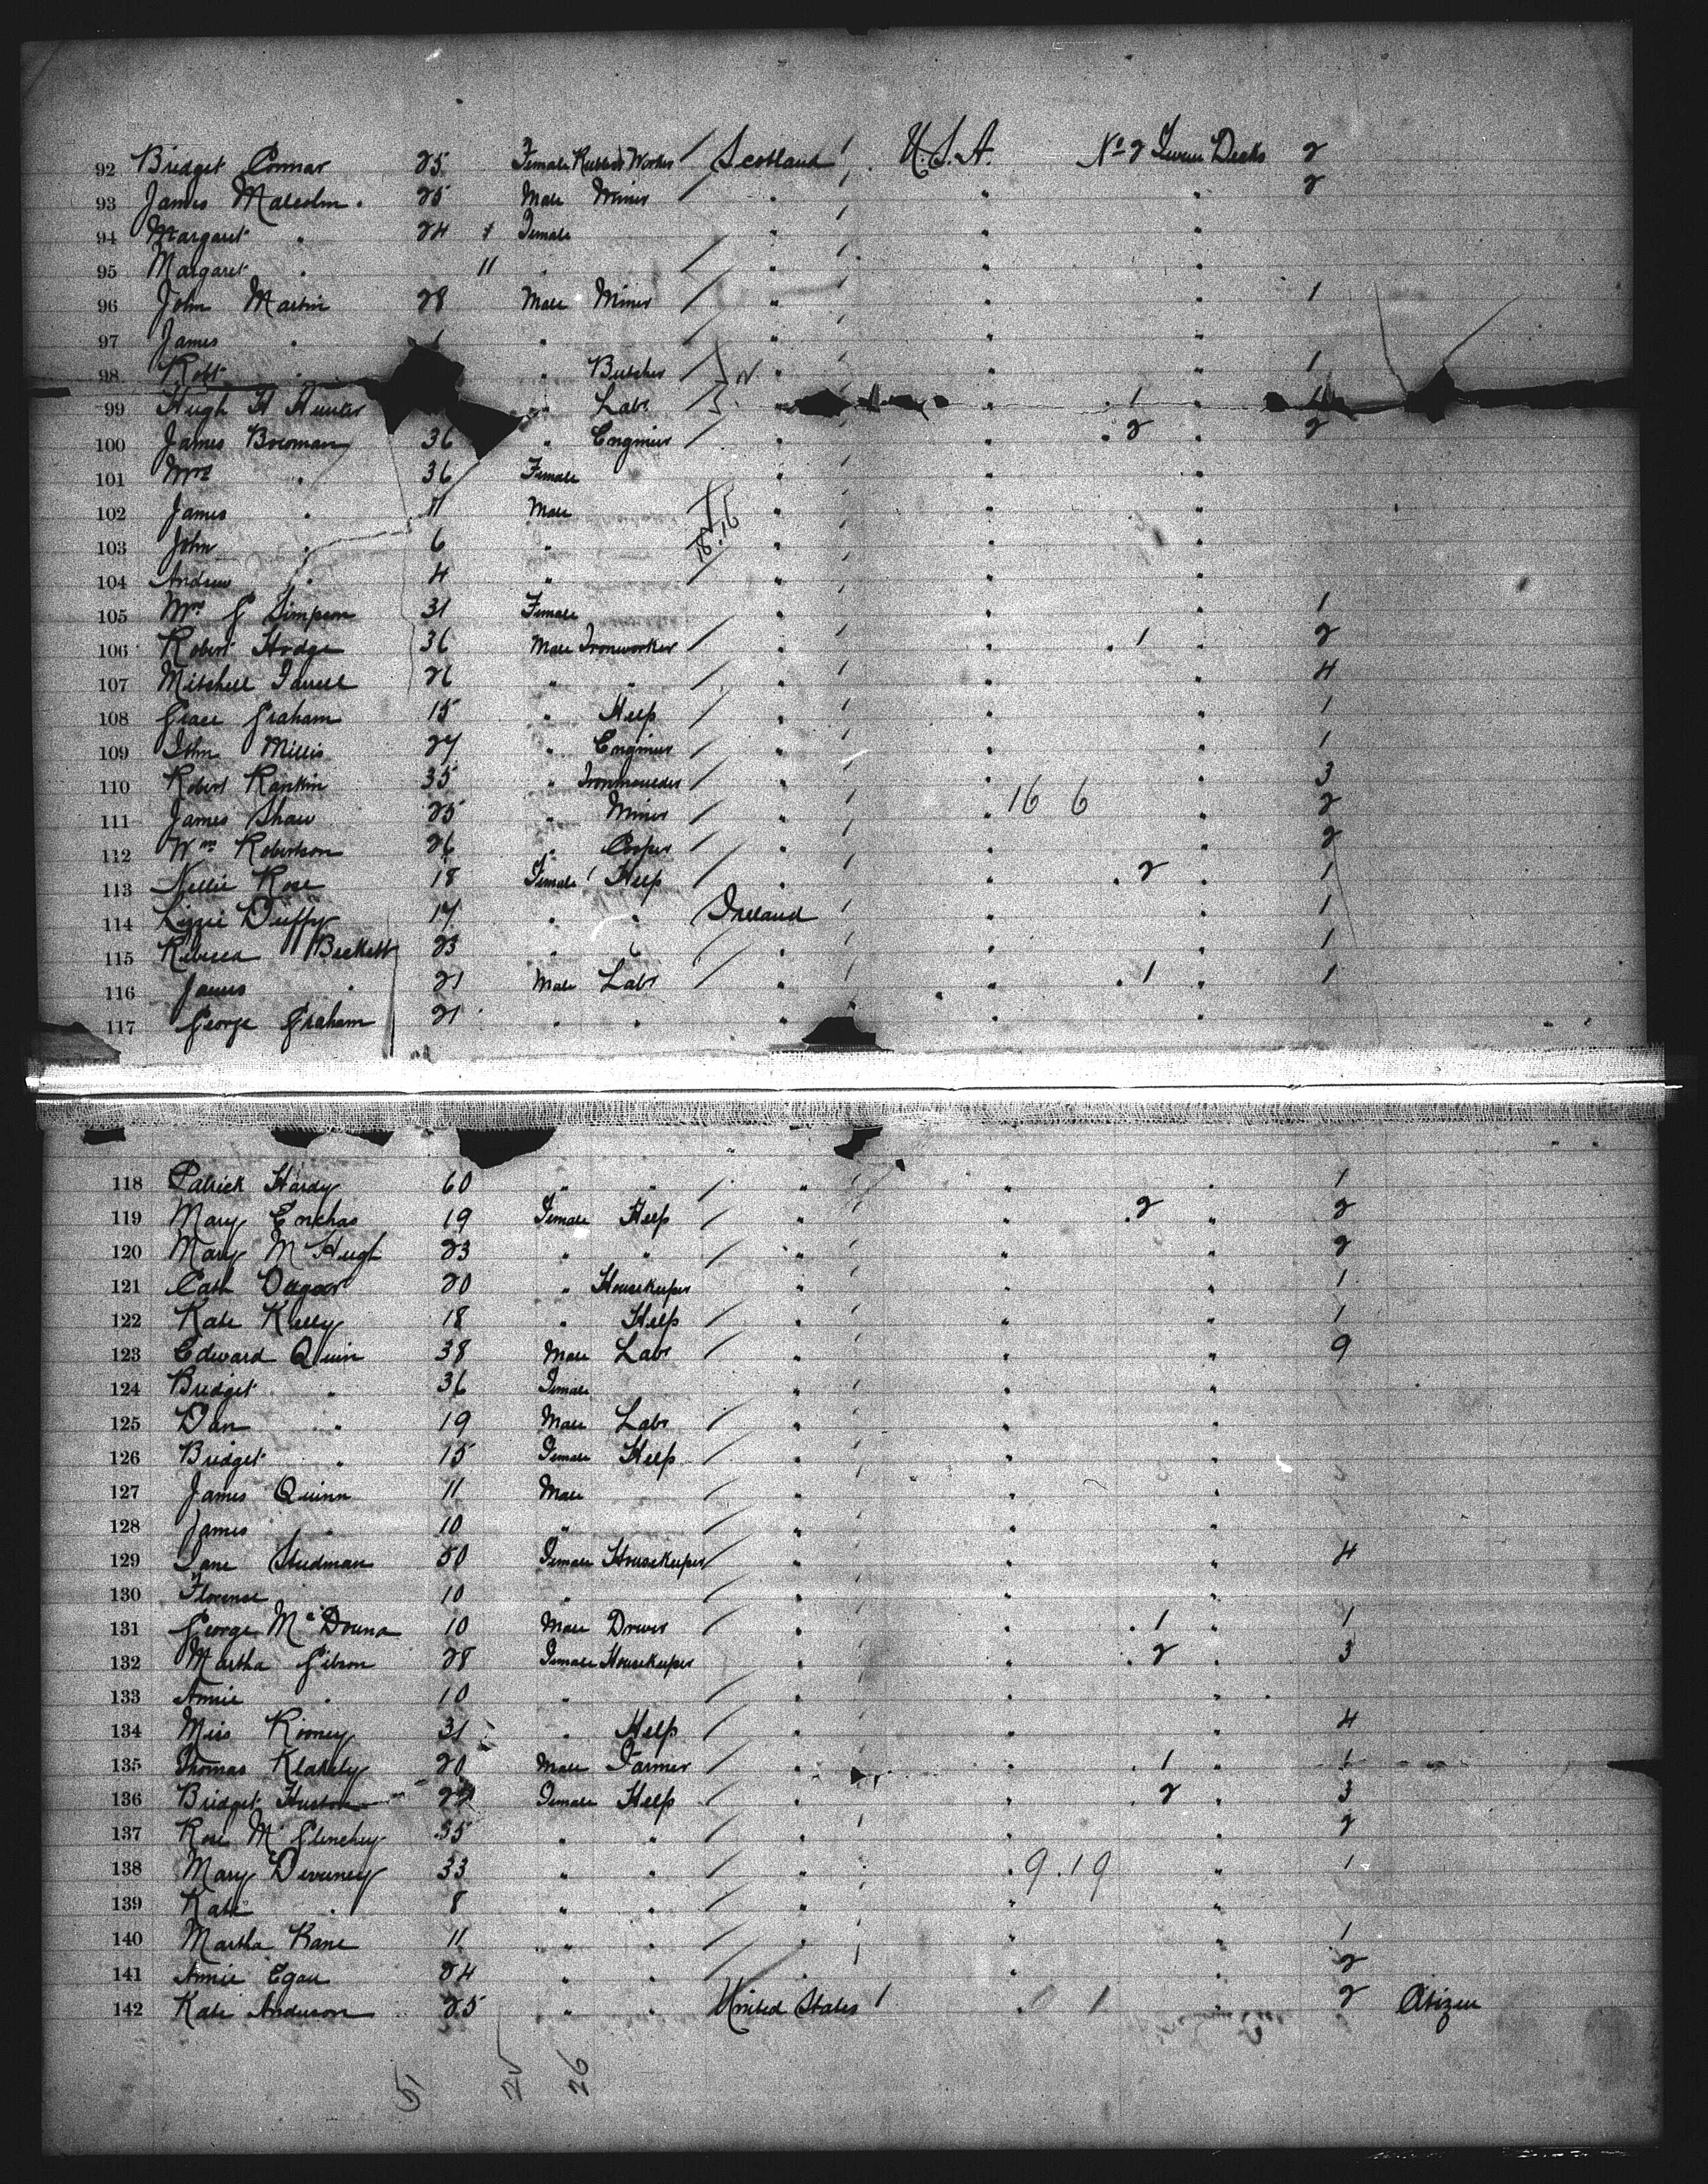 92 Bridget Connor 25 Female Rubber Worker / Scotland / U.S.A. No 2 Tween Decks 2
93 James Malcolm 25 Male Miner / " / " " 2
94 Margaret " 24 Female " / " "
95 Margaret " 11 " / " / " "
96 John Martin 28 Male Miner / " / " " 1
97 James " " / " / " "
98 Robt " " Butcher / " / " " 1
99 Hugh H Hunter " Labr / " " . 1 "
100 James Bowman 36 " Engineer / " / " . 2 . 2
101 Mrs " 36 Female " / " "
102 James " 11 Male " / " "
103 John " 6 " " / " "
18.16
104 Andrew " 4 " / " / " "
105 Mrs G Simpson 31 Female " / " " 1
106 Robert Hodge 36 Male Ironworker / " / " . 1 . 2
107 Mitchell 26 " " / " / " " 4
108 Grace Graham 15 " Help / " / " " 1
109 John Millis 27 " Engineer / " / " " 1
110 Robert Rankin 35 " Ironmoulder / " / " " 3
111 James Shaw 25 " Miner / " / 16 6 " 2
112 Wm Robertson 26 " Cooper / " / " " 2
113 Nellie Rose 18 Female Help / " / " . 2 " 1
114 Lizzie Duffy 17 " " Ireland / " " 1
115 Rebecca Beckett 23 " " / " / " " 1
116 James " 21 Male Labr / " / " . 1 . 1
117 George Graham 21 " " " " "
118 Patrick Hardy 60 " " / " / " " 1
119 Mary 19 Female Help / " / " . 2 " 2
120 Mary McHugh 23 " " / " / " " 2
121 Cath 20 " Housekeeper " / " " 1
122 Kate Kelly 18 " Help / " / " " 1
123 Edward Quin 38 Male Labr / " / " " 9
124 Bridget " 36 Female " / " "
125 Dan " 19 Male Labr / " / " "
126 Bridget " 15 Female Help / " / " "
127 James Quinn 11 Male / " / " "
128 James " 10 " / " / " "
129 Jane Studman 50 Female Housekeeper / " / " " 4
130 Florence " 10 " / " / " "
131 George 10 Male Driver / " / " . 1 " 1
132 Martha Gibson 28 Female Housekeeper " / " . 2 . 3
133 Annie " 10 " / " / " "
134 Miss Rooney 31 " Help / " / " " 4
135 Thomas 20 Male Farmer / " / " . 1 " 1
136 Bridget Female Help / " / " . 2 " 3
137 Rose McGlinchey 35 " " / " / " " 2
138 Mary Deveney 33 " " / " / . 9.19 " 1
139 Kate " 8 " " / " / " "
140 Martha Kane 11 " " / " / " " 1
141 Annie Egan 24 " " / " / " " 2
142 Kate Anderson 25 " " United States / . 0 1 " 2 Citizen
51 25 26